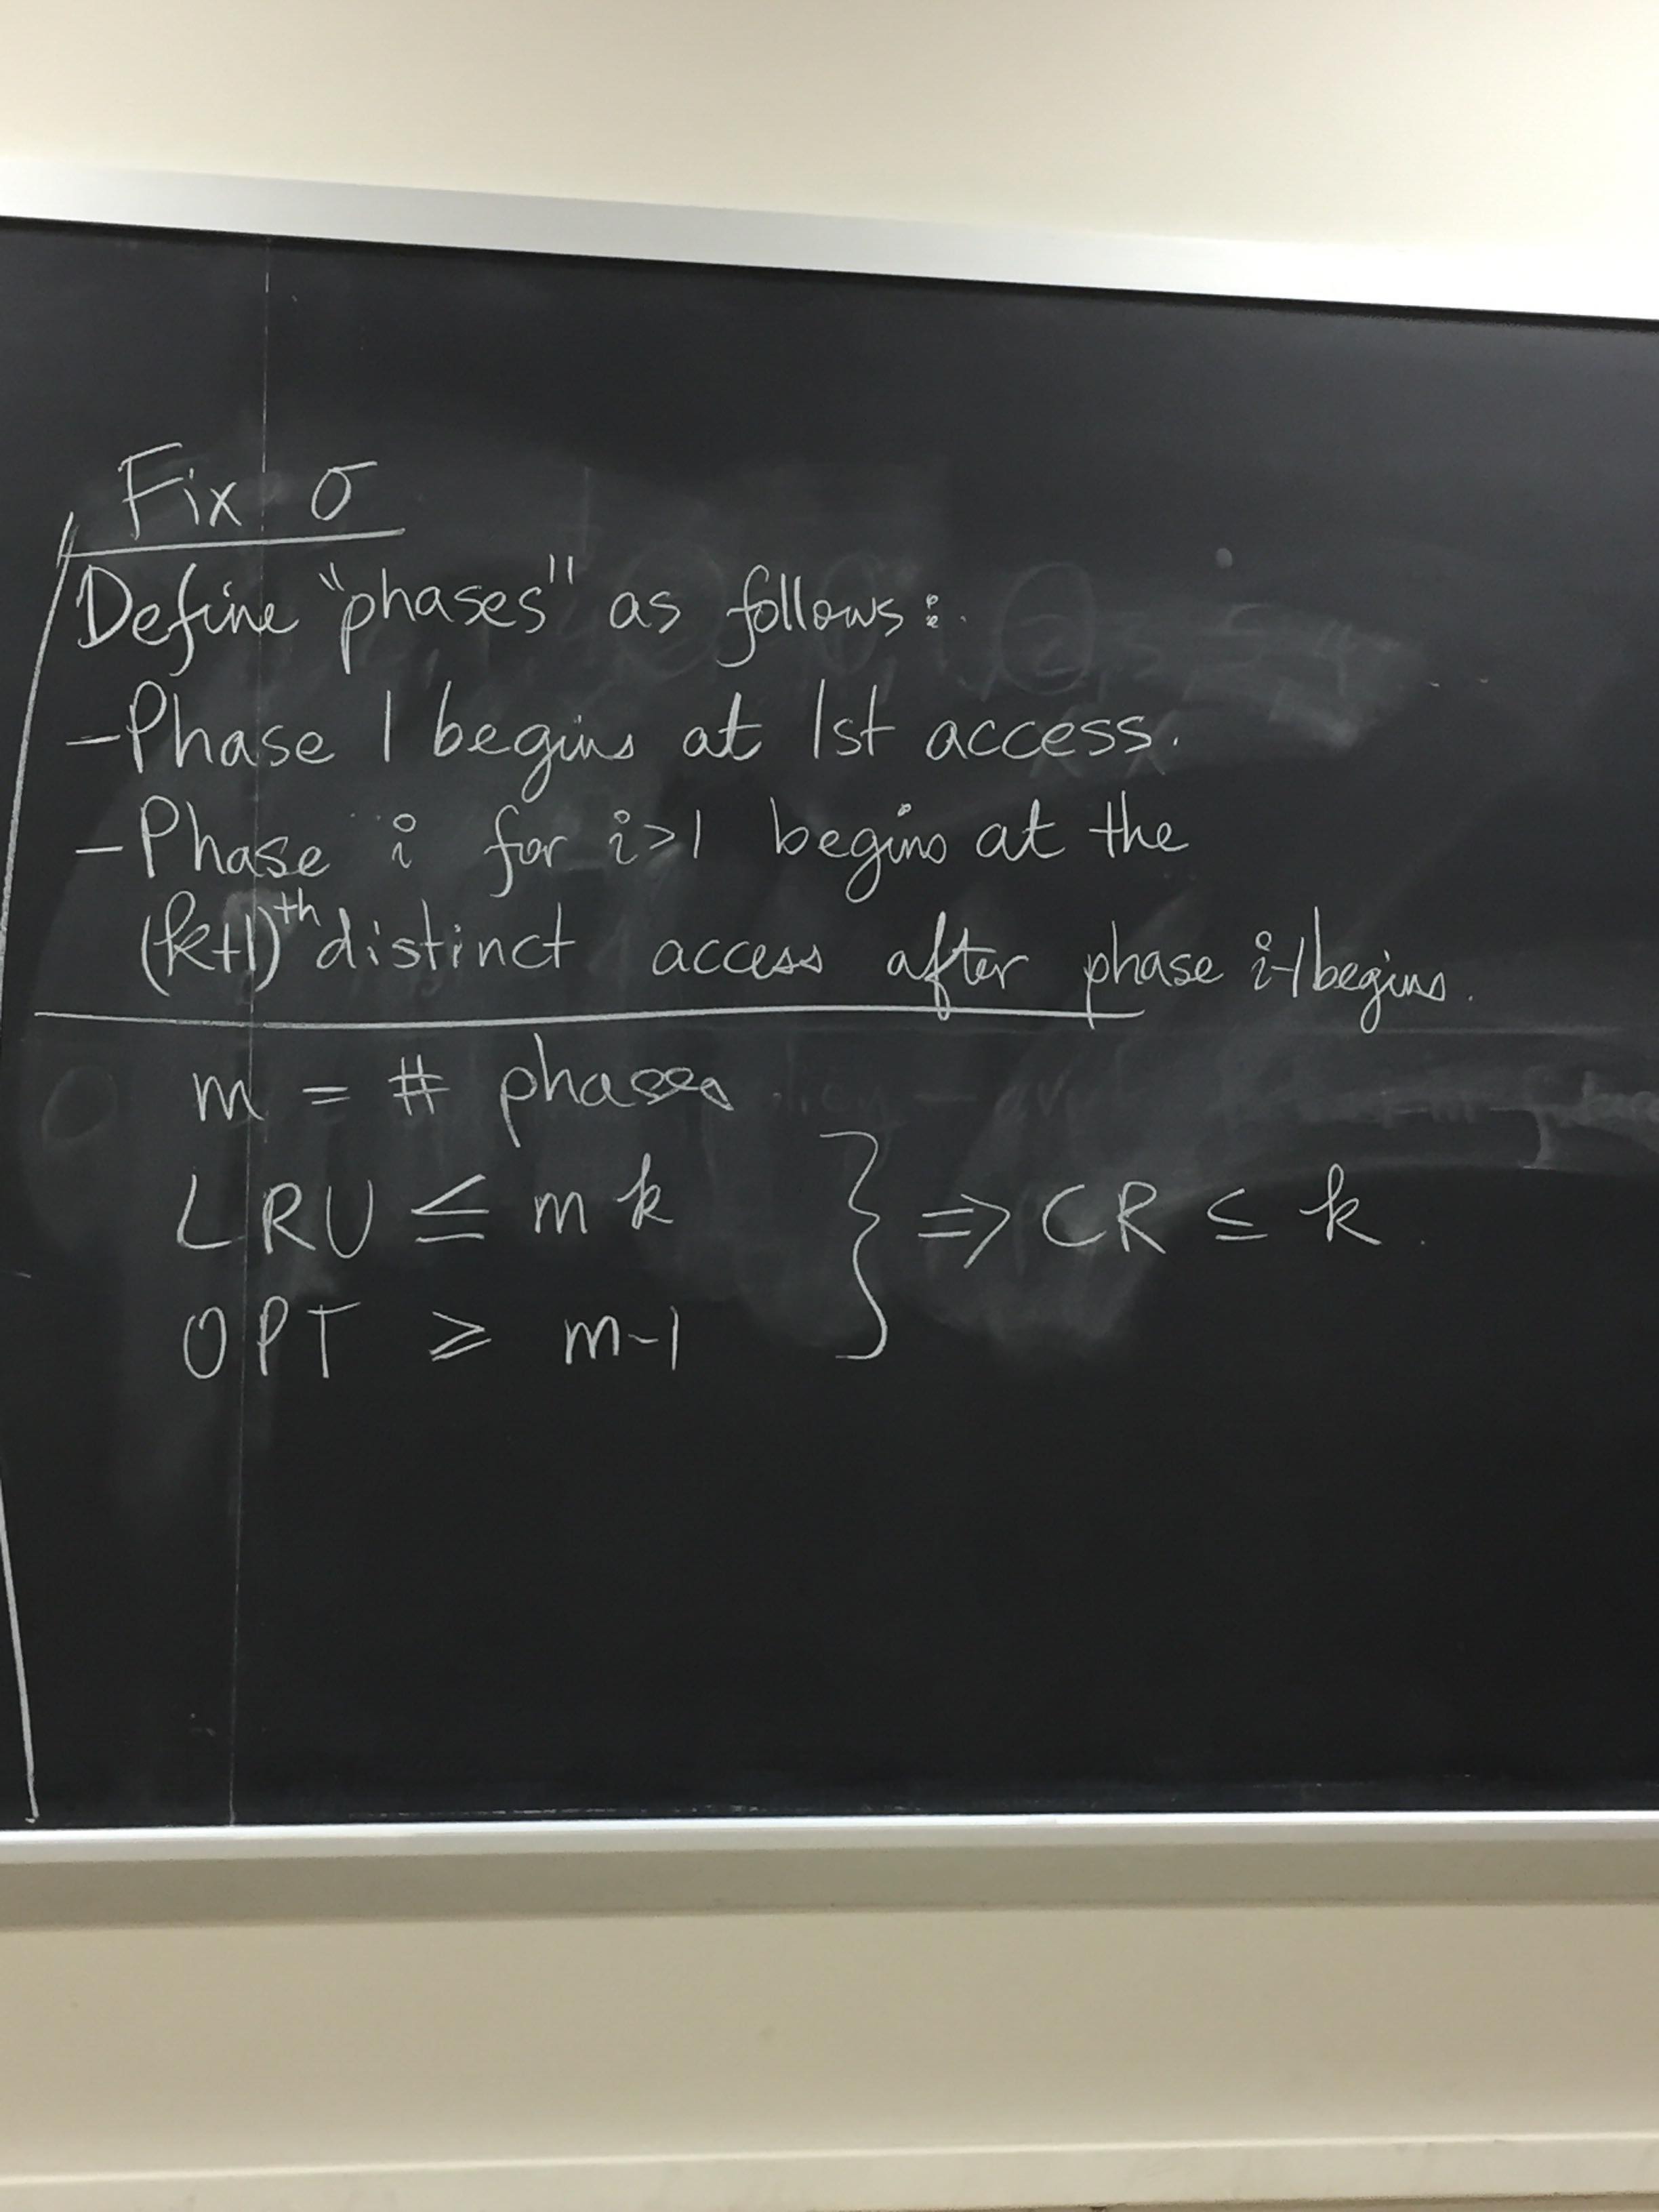 Fix σ
Define "phases" as follows:
- Phase 1 begins at 1st access.
- Phase i for i>1 begins at the
(k+1)th distinct access after phase i-1 begins.
m = # phases
LRU ≤ mk } ⇒ CR ≤ k.
OPT ≥ m-1